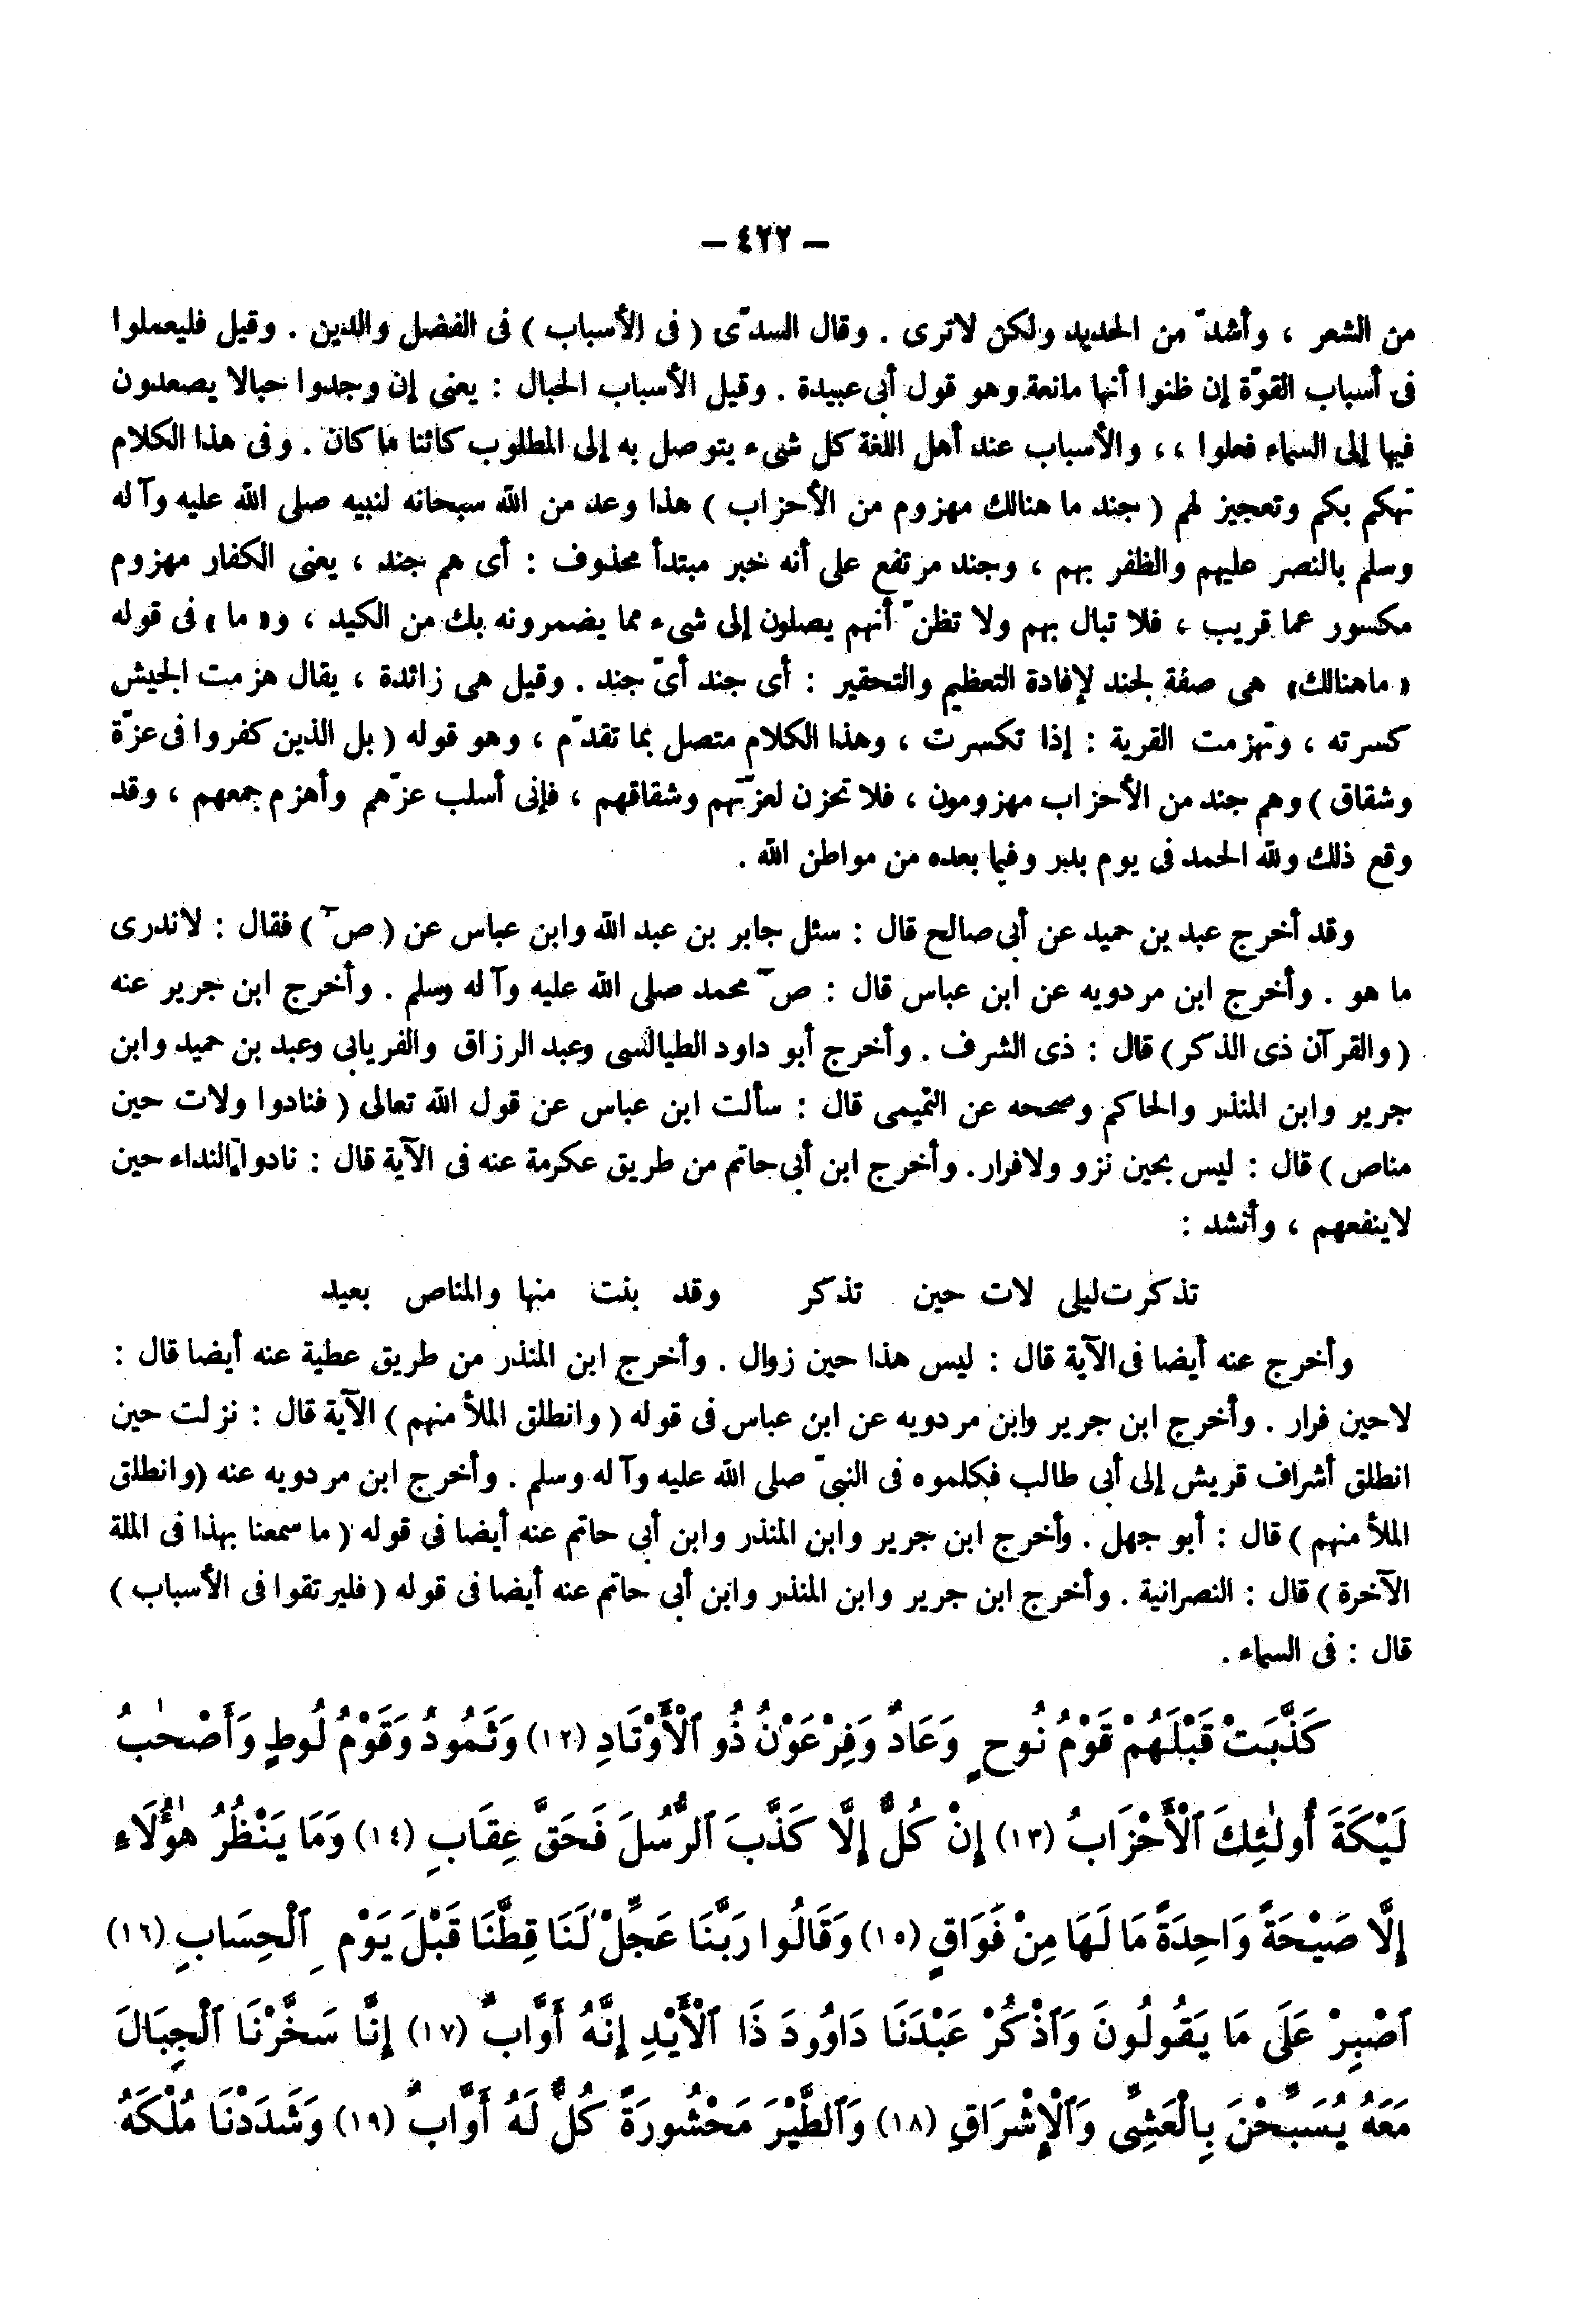 – ٤٢٢ –
من الشعر ، وأشدّ من الحديد ولكن لاترى . وقال السدّى ( فى الأسباب ) فى الفضل والدين . وقيل فليعملوا
فى أسباب القوّة إن ظنوا أنها مانعة وهو قول أبى عبيدة . وقيل الأسباب الحبال : يعنى إن وجدوا حبالا يصعدون
فيها إلى السماء فعلوا ،، والأسباب عند أهل اللغة كل شىء يتوصل به إلى المطلوب كائنا ما كان . وفى هذا الكلام
تهكم بكم وتعجيز لهم ( جند ما هنالك مهزوم من الأحزاب ) هذا وعد من الله سبحانه لنبيه صلى الله عليه وآله
وسلم بالنصر عليهم والظفر بهم ، وجند مرتفع على أنه خبر مبتدأ محذوف : أى هم جند ، يعنى الكفار مهزوم
مكسور عما قريب ، فلا تبال بهم ولا تظنّ أنهم يصلون إلى شىء مما يضمرونه بك من الكيد ، و« ما » فى قوله
« ماهنالك» هى صفة لجند لإفادة التعظيم والتحقير : أى جند أىّ جند . وقيل هى زائدة ، يقال هزمت الجيش
كسرته ، وتهزمت القرية : إذا تكسرت ، وهذا الكلام متصل بما تقدّم ، وهو قوله ( بل الذين كفروا فى عزّة
وشقاق ) وهم جند من الأحزاب مهزومون ، فلا تحزن لعزّتهم وشقاقهم ، فإنى أسلب عزّهم وأهزم جمعهم ، وقد
وقع ذلك ولله الحمد فى يوم بدر وفيما بعده من مواطن الله .
وقد أخرج عبد بن حميد عن أبى صالح قال : سئل جابر بن عبد الله وابن عباس عن ( صۤ ) فقال : لاندرى
ما هو . وأخرج ابن مردويه عن ابن عباس قال : صۤ محمد صلى الله عليه وآله وسلم . وأخرج ابن جرير عنه
( والقرآن ذى الذكر ) قال : ذى الشرف . وأخرج أبو داود الطيالسى وعبد الرزاق والفريابى وعبد بن حميد وابن
جرير وابن المنذر والحاكم وصححه عن التميمى قال : سألت ابن عباس عن قول الله تعالى ( فنادوا ولات حين
مناص ) قال : ليس بحين نزو ولافرار . وأخرج ابن أبى حاتم من طريق عكرمة عنه فى الآية قال : نادوا النداء حين
لاينفعهم ، وأنشد :
تذكرت ليلى لات حين تذكر وقد بنت منها والمناص بعيد
وأخرج عنه أيضا فى الآية قال : ليس هذا حين زوال . وأخرج ابن المنذر من طريق عطية عنه أيضا قال :
لاحين فرار . وأخرج ابن جرير وابن مردويه عن ابن عباس فى قوله ( وانطلق الملأ منهم ) الآية قال : نزلت حين
انطلق أشراف قريش إلى أبى طالب فكلموه فى النبىّ صلى الله عليه وآله وسلم . وأخرج ابن مردويه عنه (وانطلق
الملأ منهم ) قال : أبو جهل . وأخرج ابن جرير وابن المنذر وابن أبى حاتم عنه أيضا فى قوله ( ما سمعنا بهذا فى الملة
الآخرة ) قال : النصرانية . وأخرج ابن جرير وابن المنذر وابن أبى حاتم عنه أيضا فى قوله ( فليرتقوا فى الأسباب )
قال : فى السماء .
كَذَّبَتْ قَبْلَهُمْ قَوْمُ نُوحٍ وَعَادٌ وَفِرْعَوْنُ ذُو ٱلْأَوْتَادِ (١٢) وَثَمُودُ وَقَوْمُ لُوطٍ وَأَصْحٰبُ
لَيْكَةَ أُولٰئِكَ ٱلْأَحْزَابُ (١٣) إِنْ كُلٌّ إِلَّا كَذَّبَ ٱلرُّسُلَ فَحَقَّ عِقَابِ (١٤) وَمَا يَنْظُرُ هٰؤُلَاءِ
إِلَّا صَيْحَةً وَاحِدَةً مَا لَهَا مِنْ فَوَاقٍ (١٥) وَقَالُوا رَبَّنَا عَجِّلْ لَنَا قِطَّنَا قَبْلَ يَوْمِ ٱلْحِسَابِ (١٦)
ٱصْبِرْ عَلَى مَا يَقُولُونَ وَٱذْكُرْ عَبْدَنَا دَاوُودَ ذَا ٱلْأَيْدِ إِنَّهُ أَوَّابٌ (١٧) إِنَّا سَخَّرْنَا ٱلْجِبَالَ
مَعَهُ يُسَبِّحْنَ بِالْعَشِىِّ وَٱلْإِشْرَاقِ (١٨) وَٱلطَّيْرَ مَحْشُورَةً كُلٌّ لَهُ أَوَّابٌ (١٩) وَشَدَدْنَا مُلْكَهُ